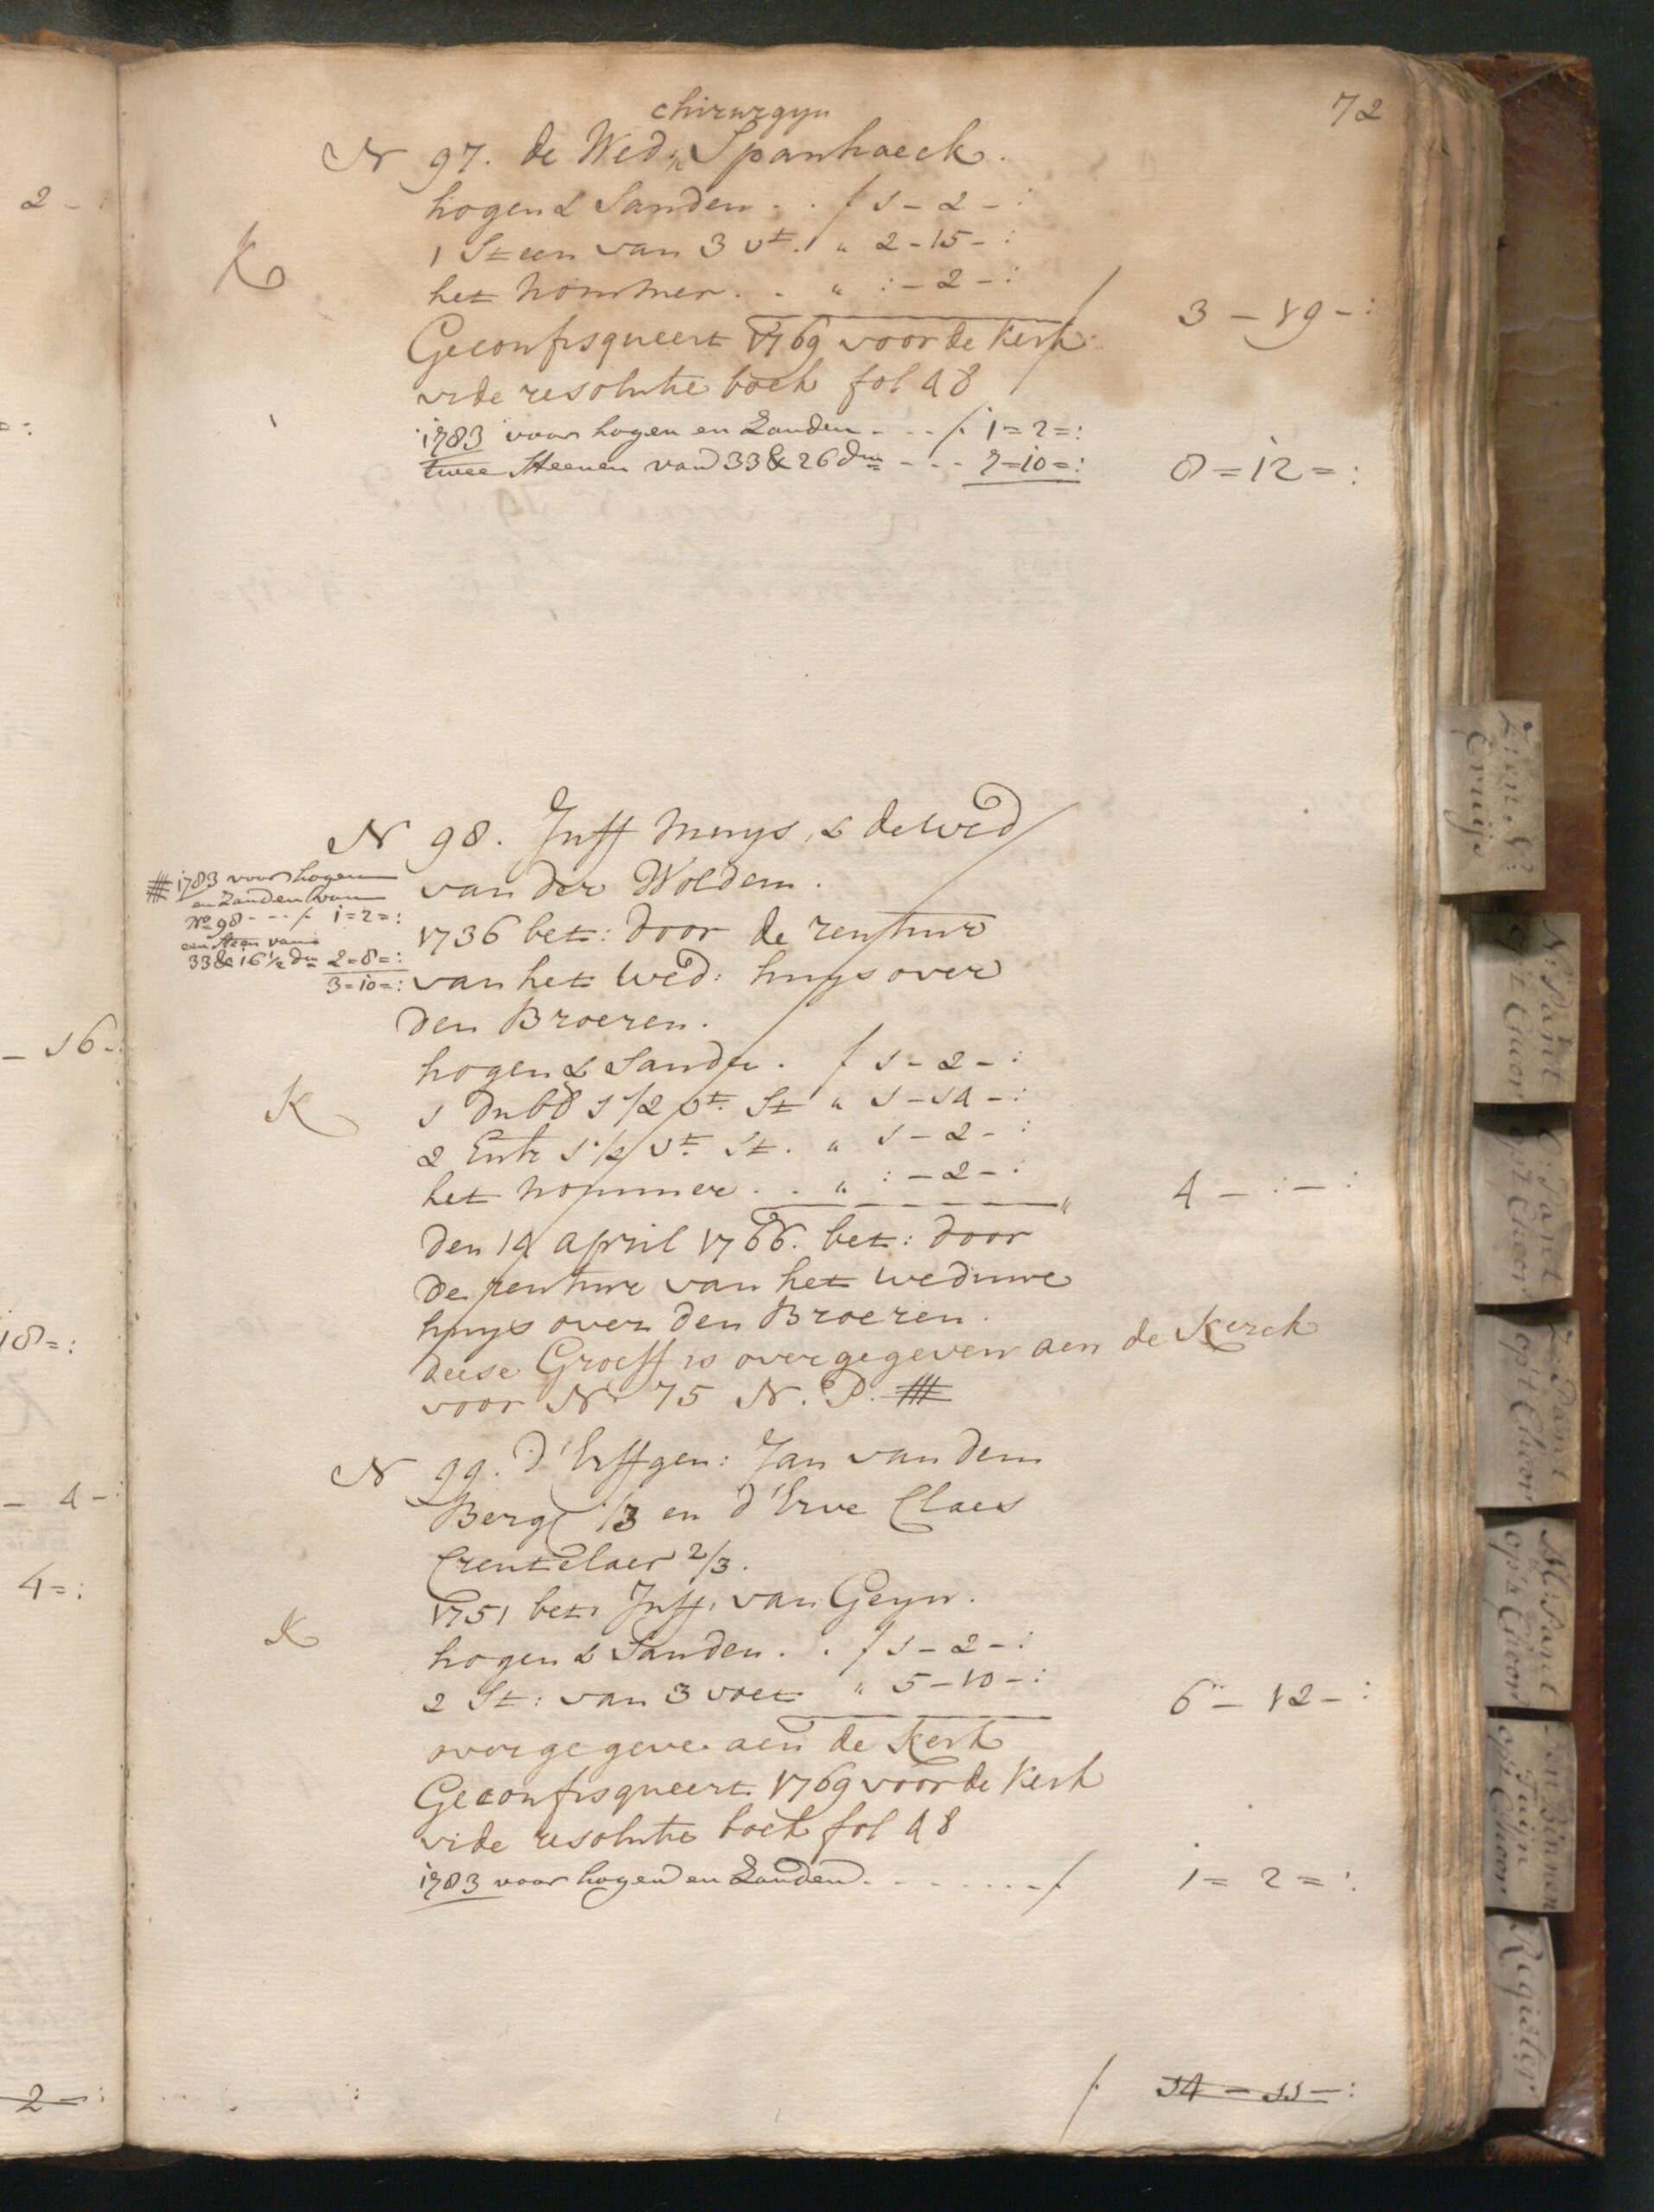 72
chirurgyn
N 97. de Wed: Spanhaeck.
hogen & Sanden . . f 1 - 2 - :
1 Steen van 3 vt. " 2 - 15 - :
het nommer . . " : - 2 - :
3 - 19 - :
K
Geconfisqueert 1769 voor de Kerk
vide resolutie boek fol 48
1783 voor hogen en Zanden - - - f. 1 = 2 = :
twee Steenen van 33 & 26 dm - - - 7 = 10 = :
8 = 12 = :
N 98. Juff Muys, & de Wed
van der Wolden.
1736 bet: door de rentme
van het Wed: huys over
den Broeren.
# 1783 voor hogen
en Zanden van
No 98 - - - f. 1 = 2 = :
een Steen van
33 & 16 1/2 dm 2 = 8 = :
3 = 10 = :
hogen & Sanden . f 1 - 2 - :
K
1 dubb 1 1/2 vt. St " 1 - 14 - :
2 Enk 1 1/2 vt. St. " 1 - 2 - :
het nommer . . " : - 2 - :
4 - : - :
den 14 april 1766. bet: door
de rentme van het weduwe
huys over den Broeren.
deese Groeff is overgegeven aen de Kerck
voor No 75 N. P. #
N 99. d'Erffgen: Jan van den
Berg 1/3 en d'Erve Claes
Crentelaer 2/3.
1751 bet: Juff. van Geyn.
K
hogen & Sanden . . f 1 - 2 - :
2 St: van 3 voet " 5 - 10 - :
6 - 12 - :
overgegeve aen de Kerk
Geconfisqueert 1769 voor de Kerk
vide resolutie boek fol 48
1783 voor hogen en Zanden . - - - - - f
1 = 2 = :
f. 14 - 11 - :
2 -
- 16 - :
18 = :
- 4 - :
4 = :
2 - :
Cruijs
N: Pant
op 't Choor
Z: Pant
op 't Choor
Z. Pant
op 't Choor
M: Pant
op 't Choor
Den Binnen
Tuijn
op 't Choor
Register